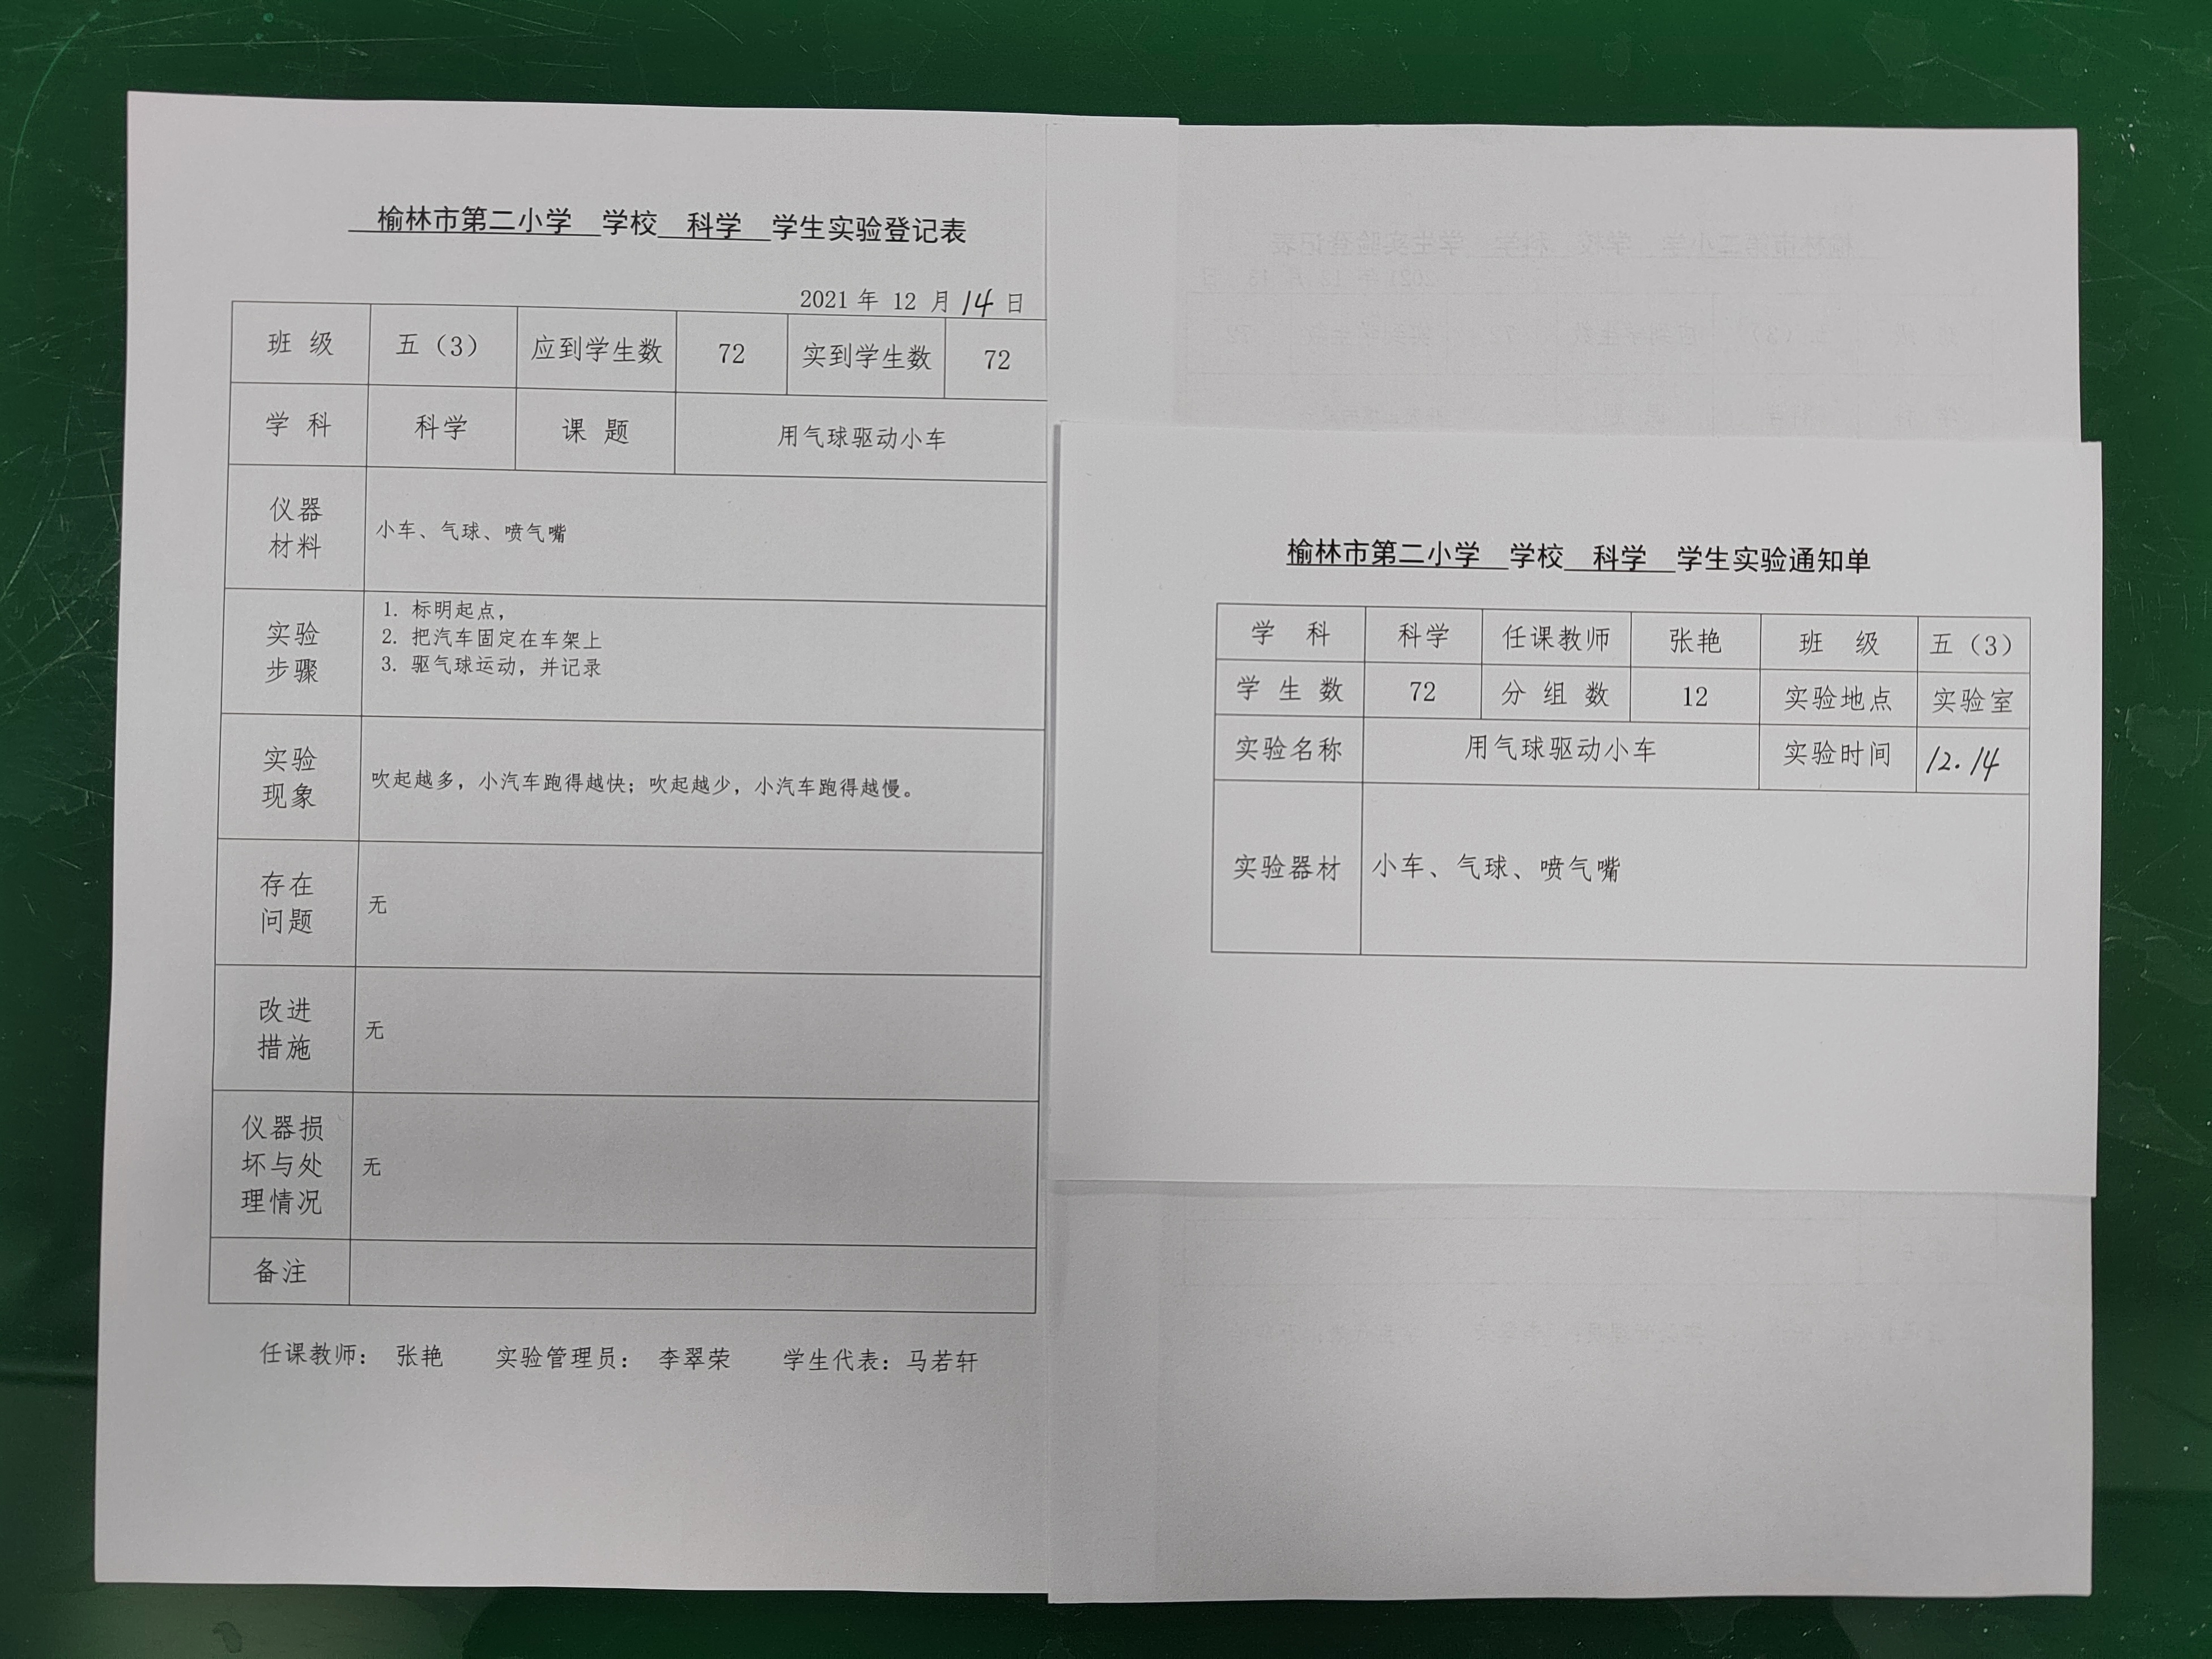 榆林市第二小学 学校 科学 学生实验登记表
2021 年 12 月 14 日
班 级 五（3） 应到学生数 72 实到学生数 72
学 科 科学 课 题 用气球驱动小车
仪器
材料
小车、气球、喷气嘴
实验
步骤
1. 标明起点，
2. 把汽车固定在车架上
3. 驱气球运动，并记录
实验
现象
吹起越多，小汽车跑得越快；吹起越少，小汽车跑得越慢。
存在
问题
无
改进
措施
无
仪器损
坏与处
理情况
无
备注
任课教师： 张艳 实验管理员： 李翠荣 学生代表：马若轩
榆林市第二小学 学校 科学 学生实验通知单
学 科 科学 任课教师 张艳 班 级 五（3）
学 生 数 72 分 组 数 12 实验地点 实验室
实验名称 用气球驱动小车 实验时间 12.14
实验器材 小车、气球、喷气嘴